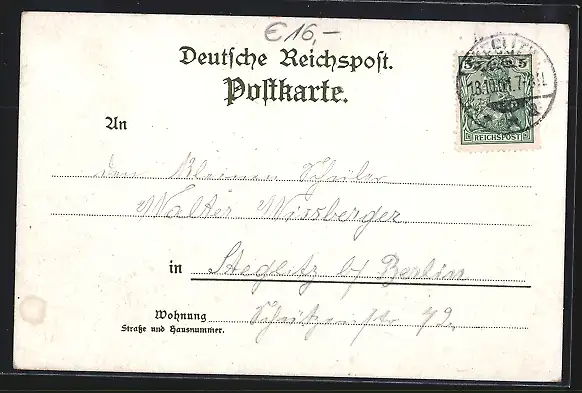 € 16,-
Deutsche Reichspost.
Postkarte.
5 5
18.10.01. 7-8N.
REICHSPOST
An
den kleinen Schüler
Walter Wissberger
in Steglitz b/ Berlin
Wohnung Schützenstr 42
Straße und Hausnummer.